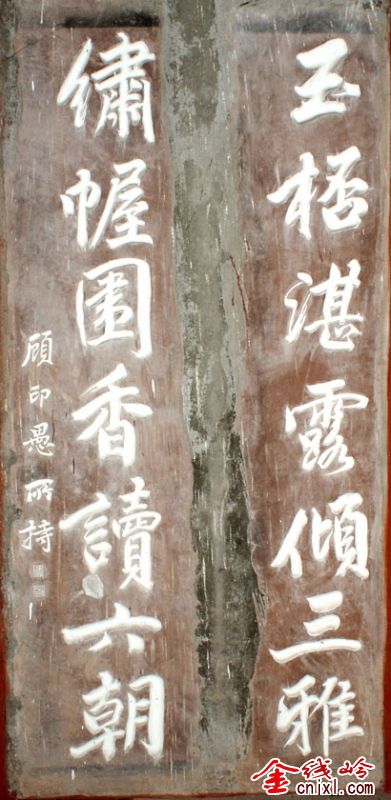 玉桮湛露傾三雅
繡幄圍香讀六朝
顧印愚所持
金线岭
cnjxl.com